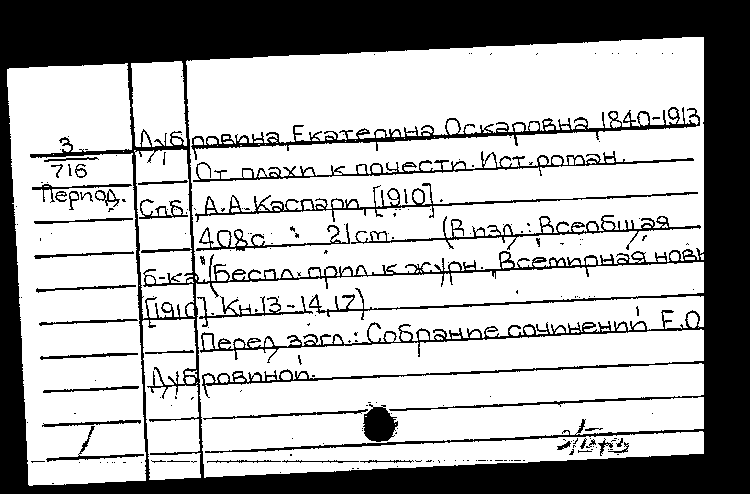 3
716
Период.
Дубровина, Екатерина Оскаровна, 1840-1913.
От плахи к почести. Ист. роман.
Спб., А.А. Каспари, [1910].
408с. 21см. (В изд.: Всеобщая
б-ка. (Беспл. прил. к журн. "Всемирная новь
[1910]. Кн. 13-14, 17)
Перед загл.: Собрание сочинений Е.О.
Дубровиной.